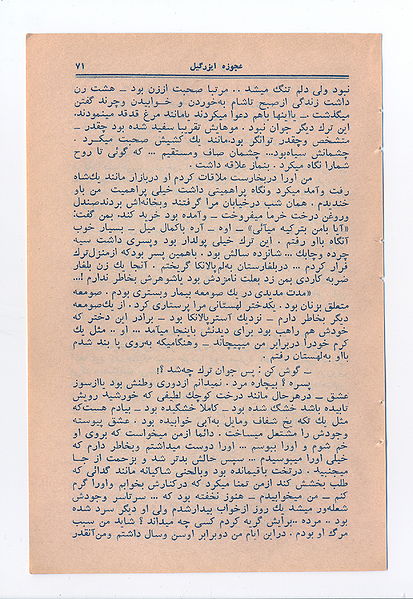 عجوزه ایزرگیل
۷۱
نبود ولی دلم تنگ میشد . . مرتبا صحبت اززن بود – هشت زن
داشت زندگی ازصبح تاشام به‌خوردن و خوابیدن وچرند گفتن
میگذشت – یااینها باهم دعوا میکردند بامانند مرغ قدقد مینمودند.
این ترك دیگر جوان نبود . موهایش تقریبا سفید شده بود چقدر –
متشخص وچقدر توانگر بود. مانند یك کشیش صحبت میکرد .
چشمانش سیاه‌بود... چشمان صاف ومستقیم ... که گوئی تا روح
شمارا نگاه میکرد . بنماز علاقه داشت .
من اورا دربخارست ملاقات کردم او دربازار مانند یك‌شاه
رفت وآمد میکرد ونگاه پراهمیتی داشت خیلی پراهمیت من باو
خندیدم . همان شب درخیابان مرا گرفتند وبخانه‌اش بردندصندل
وروغن درخت خرما میفروخت – وآمده بود خرید کند. بمن گفت:
«آیا بامن بترکیه میآئی» – اوه – آره باکمال میل – بسیار خوب
آنگاه بااو رفتم . این ترك خیلی پولدار بود وپسری داشت سیه
چرده وچابك ... شانزده سالش بود . باهمین پسر بودکه ازمنزل‌ترك
فرار کردم ... دربلغارستان به‌لم‌پالانکا گریختم . آنجا یك زن بلغار
ضربه کاردی بمن زد بعلت نامزدش بود یاشوهرش بخاطر ندارم !...
«مدت مدیدی در یك صومعه بیمار وبستری بودم . صومعه
متعلق بزنان بود . یکدختر لهستانی مرا پرستاری کرد . از یك‌صومعه
دیگر بخاطر دارم – نزدیك آسترپالانکا بود – برادر این دختر که
خودش هم راهب بود برای دیدنش باینجا میآمد ... او ... مثل یك
کرم خودرا دربرابر من میپیچاند – وهنگامیکه به‌روی پا بند شدم
بااو به‌لهستان رفتم .
– گوش کن : پس جوان ترك چه‌شد ؟!
پسره ؟ بیچاره مرد . نمیدانم ازدوری وطنش بود یاازسوز
عشق – درهرحال مانند درخت کوچك لطیفی که خورشید رویش
تابیده باشد خشك شده بود – کاملا خشکیده بود – بیادم هست‌که
مثل یك تکه یخ شفاف ومایل به‌آبی خوابیده بود . عشق پیوسته
وجودش را مشتعل میساخت . دائما ازمن میخواست که بروی او
خم شوم و اورا ببوسم ... اورا دوست میداشتم وبخاطر دارم که
خیلی اورا میبوسیدم ... سپس حالش بدتر شد و بزحمت از جا
میجنبید . درتخت باقیمانده بود وبالحنی شاکیانه مانند گدائی که
طلب بخشش کند ازمن تمنا میکرد که درکنارش بخوابم واورا گرم
کنم – من میخوابیدم – هنوز نخفته بود که ... سرتاسر وجودش
شعله‌ور میشد یك روز ازخواب بیدارشدم ولی او دیگر سرد شده
بود .. مرده ..برایش گریه کردم کسی چه میداند ؟ شاید من سبب
مرگ او بودم . دراین ایام من دوبرابر اوسن وسال داشتم ومن‌آنقدر